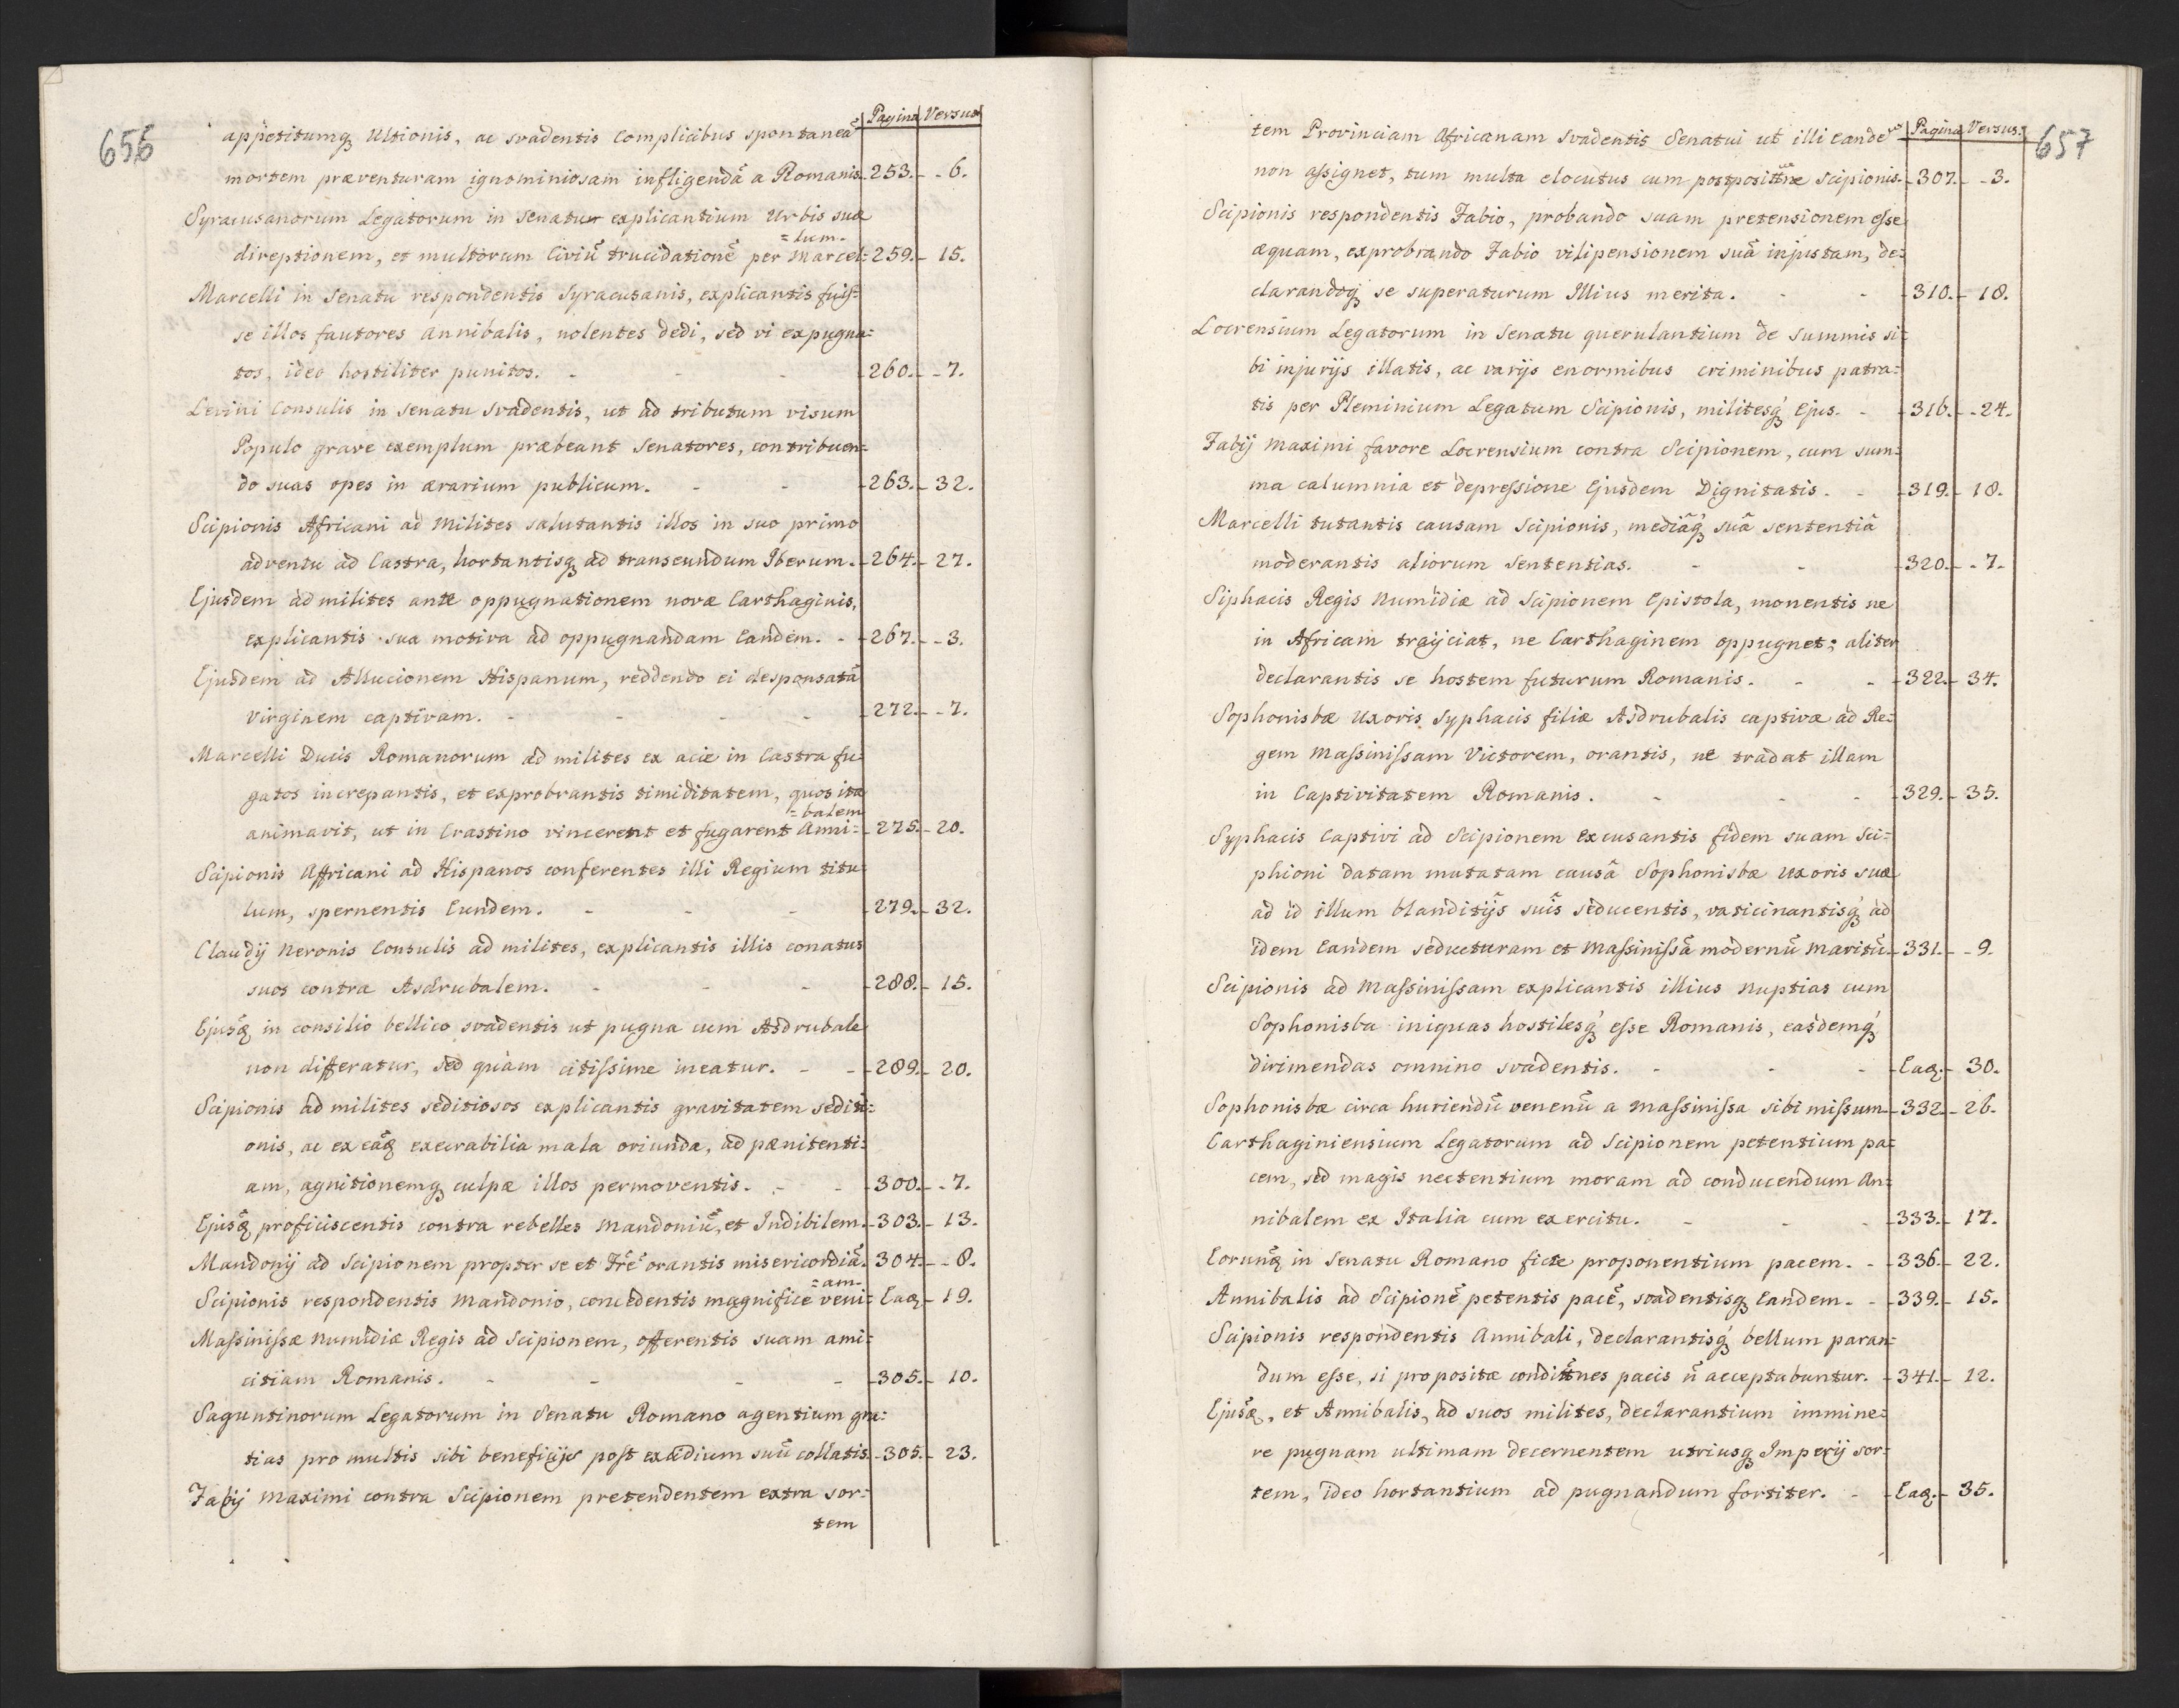 656
Pagina Versus
appetitumq́ Ultionis, ac svadentis Complicibus spontaneã
mortem præventuram ignominiosam infligendã a Romanis. 253. - 6.
Syracusanorum Legatorum in Senatu explicantium Urbis suæ
=lum.
direptionem, et multorum Civiũ trucidationẽ per Marcel= 259. - 15.
Marcelli in Senatu respondentis Syracusanis, explicantis fuis=
se illos fautores Annibalis, nolentes dedi, sed vi expugna=
tos, ideo hostiliter punitos. - - - 260. - 7.
Levini Consulis in Senatu svadentis, ut ad tributum visum
Populo grave exemplum præbeant Senatores, contribuen=
do suas opes in ærarium publicum. - - 263. - 32.
Scipionis Africani ad Milites salutantis illos in suo primo
adventu ad Castra, hortantisq́ ad transeundum Iberum. - 264. - 27.
Ejusdem ad milites ante oppugnationem novæ Carthaginis,
explicantis sua motiva ad oppugnandam Eandem. - 267. - 3.
Ejusdem ad Allucionem Hispanum, reddendo ei desponsatã
Virginem captivam. - - - - 272. - 7.
Marcelli Ducis Romanorum ad milites ex acie in Castra fu=
gatos increpantis, et exprobrantis timiditatem, quos ita
=balem
animavit, ut in Crastino vincerent et fugarent Anni= 275. - 20.
Scipionis Affricani ad Hispanos conferentes illi Regium titu=
lum, spernentis Eundem. - - - 279. - 32.
Claudij Neronis Consulis ad milites, explicantis illis conatus
suos contra Asdrubalem. - - - 288. - 15.
Ejusq̃ in consilio bellico svadentis ut pugna cum Asdrubale
non differatur, sed quàm citissime ineatur. - - 289. - 20.
Scipionis ad milites seditiosos explicantis gravitatem sediti=
onis, ac ex eãq execrabilia mala oriunda, ad pænitenti=
am, agnitionemq́ culpæ illos permoventis. - - 300. - 7.
Ejusq̃ proficiscentis contra rebelles Mandoniũ, et Indibilem. - 303. - 13.
Mandonij ad Scipionem propter se et Frẽ orantis misericordiã. 304. - 8.
=am.
Scipionis respondentis Mandonio, concedentis magnifice veni= Eaq. - 19.
Massinissæ Numidiæ Regis ad Scipionem, offerentis suam ami=
citiam Romanis. - - - - 305. - 10.
Saguntinorum Legatorum in Senatu Romano agentium gra=
tias pro multis sibi beneficijs post excidium suũ collatis. - 305. - 23.
Fabij Maximi contra Scipionem pretendentem extra sor=
tem
657
Pagina Versus.
tem Provinciam Africanam svadentis Senatui ut illi Eandem
non assignet, tum multa elocutus cum postpositne Scipionis. - 307. - 3.
Scipionis respondentis Fabio, probando suam pretensionem esse
æquam, exprobrando Fabio vilipensionem suã injustam, de=
clarandoq́ se superaturum Illius merita. - - 310. - 18.
Locrensium Legatorum in Senatu querulantium de summis si=
bi injurijs illatis, ac varijs enormibus criminibus patra=
tis per Pleminium Legatum Scipionis, militesq́ Ejus. - 316. - 24.
Fabij Maximi favore Locrensium contra Scipionem, cum sum=
ma calumnia et depressione Ejusdem Dignitatis. - 319. - 18.
Marcelli tutantis causam Scipionis, mediâq́ suâ sententiâ
moderantis aliorum Sententias. - - 320. - 7.
Siphacis Regis Numidiæ ad Scipionem Epistola, monentis ne
in Africam traijciat, ne Carthaginem oppugnet; aliter
declarantis se hostem futurum Romanis. - - 322. - 34.
Sophonisbæ Uxoris Syphacis filiæ Asdrubalis captivæ ad Re=
gem Massinissam Victorem, orantis, ne tradat illam
in Captivitatem Romanis. - - - 329. - 35.
Syphacis Captivi ad Scipionem Excusantis fidem suam Sci=
phioni datam mutatam causâ Sophonisbæ Uxoris suæ
ad id illum blanditijs suis seducentis, vaticinantisq́ ad
idem Eandem seducturam et Massinissã modernũ Maritũ. - 331. - 9.
Scipionis ad Massinissam explicantis illius Nuptias cum
Sophonisba iniquas hostilesq́ esse Romanis, easdemq́
dirimendas omnino svadentis. - - - Eaq. - 30.
Sophonisbæ circa huriendũ venenũ a Massinissa sibi missum. - 332. - 26.
Carthaginiensium Legatorum ad Scipionem petentium pa=
cem, sed magis nectentium moram ad conducendum An=
nibalem ex Italia cum exercitu. - - - 333. - 17.
Eorunq̃ in Senatu Romano ficte proponentium pacem. - 336. - 22.
Annibalis ad Scipionẽ petentis pacẽ, svadentisq́ Eandem. - 339. - 15.
Scipionis respondentis Annibali, declarantisq́ bellum paran=
dum esse, si propositæ conditnes pacis ñ acceptabuntur. - 341. - 12.
Ejusq̃, et Annibalis, ad suos milites, declarantium immine=
re pugnam ultimam decernentem utriusq́ Imperij sor=
tem, ideo hortantium ad pugnandum fortiter. - Eaq. - 35.